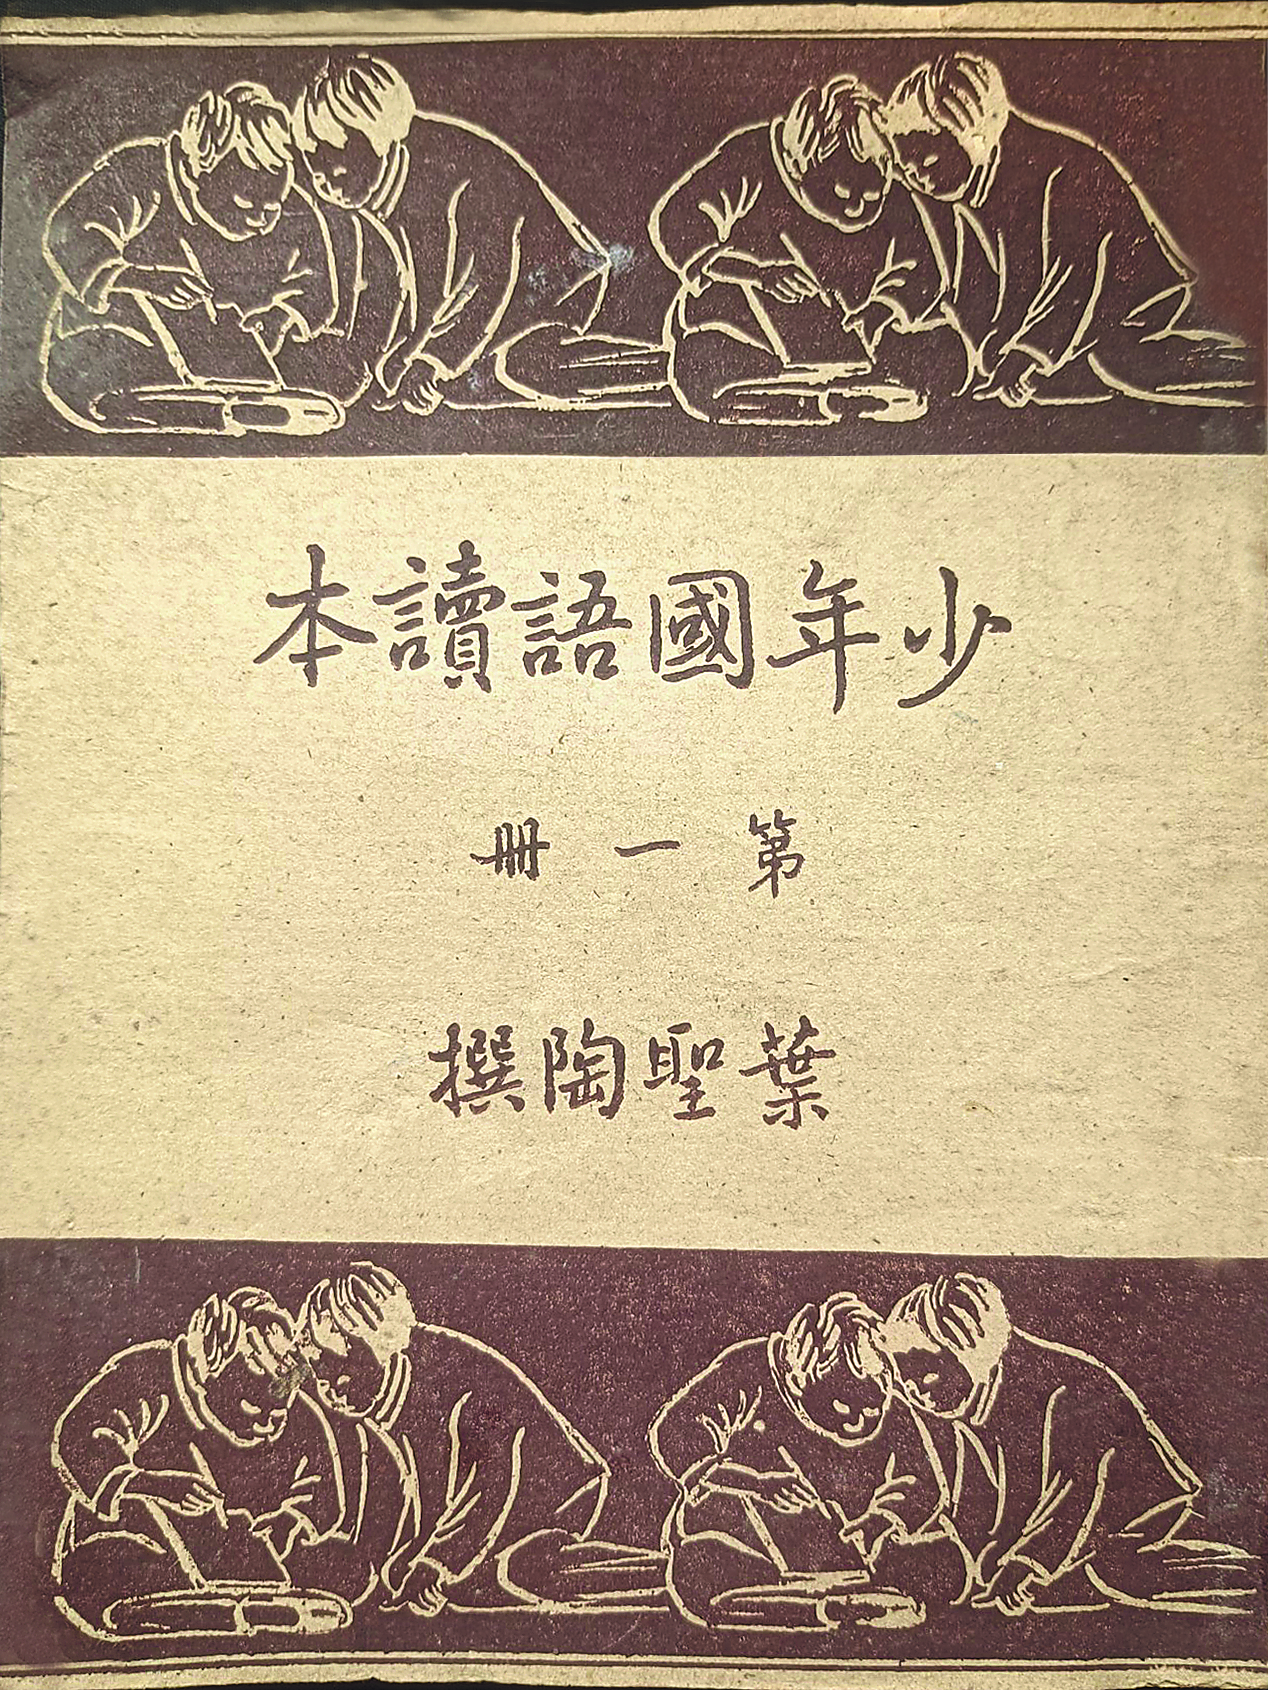 少年國語讀本
第一冊
葉聖陶撰